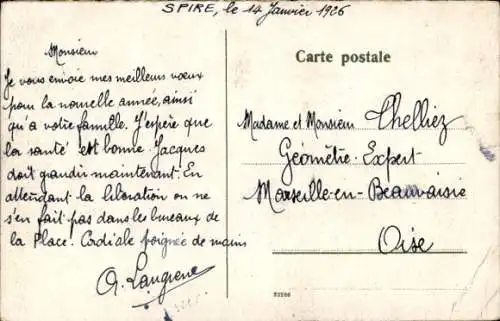 SPIRE, le 14 Janvier 1926
Carte postale
Monsieur
Je vous envoie mes meilleurs vœux
pour la nouvelle année, ainsi
qu'à votre famille. J'espère que
la santé est bonne. Jacques
doit grandir maintenant. En
attendant la libération on ne
s'en fait pas dans les bureaux de
la Place! Cordiale poignée de mains
Madame et Monsieur Thelliez
Géomètre-Expert
Marseille-en-Beauvaisis
Oise